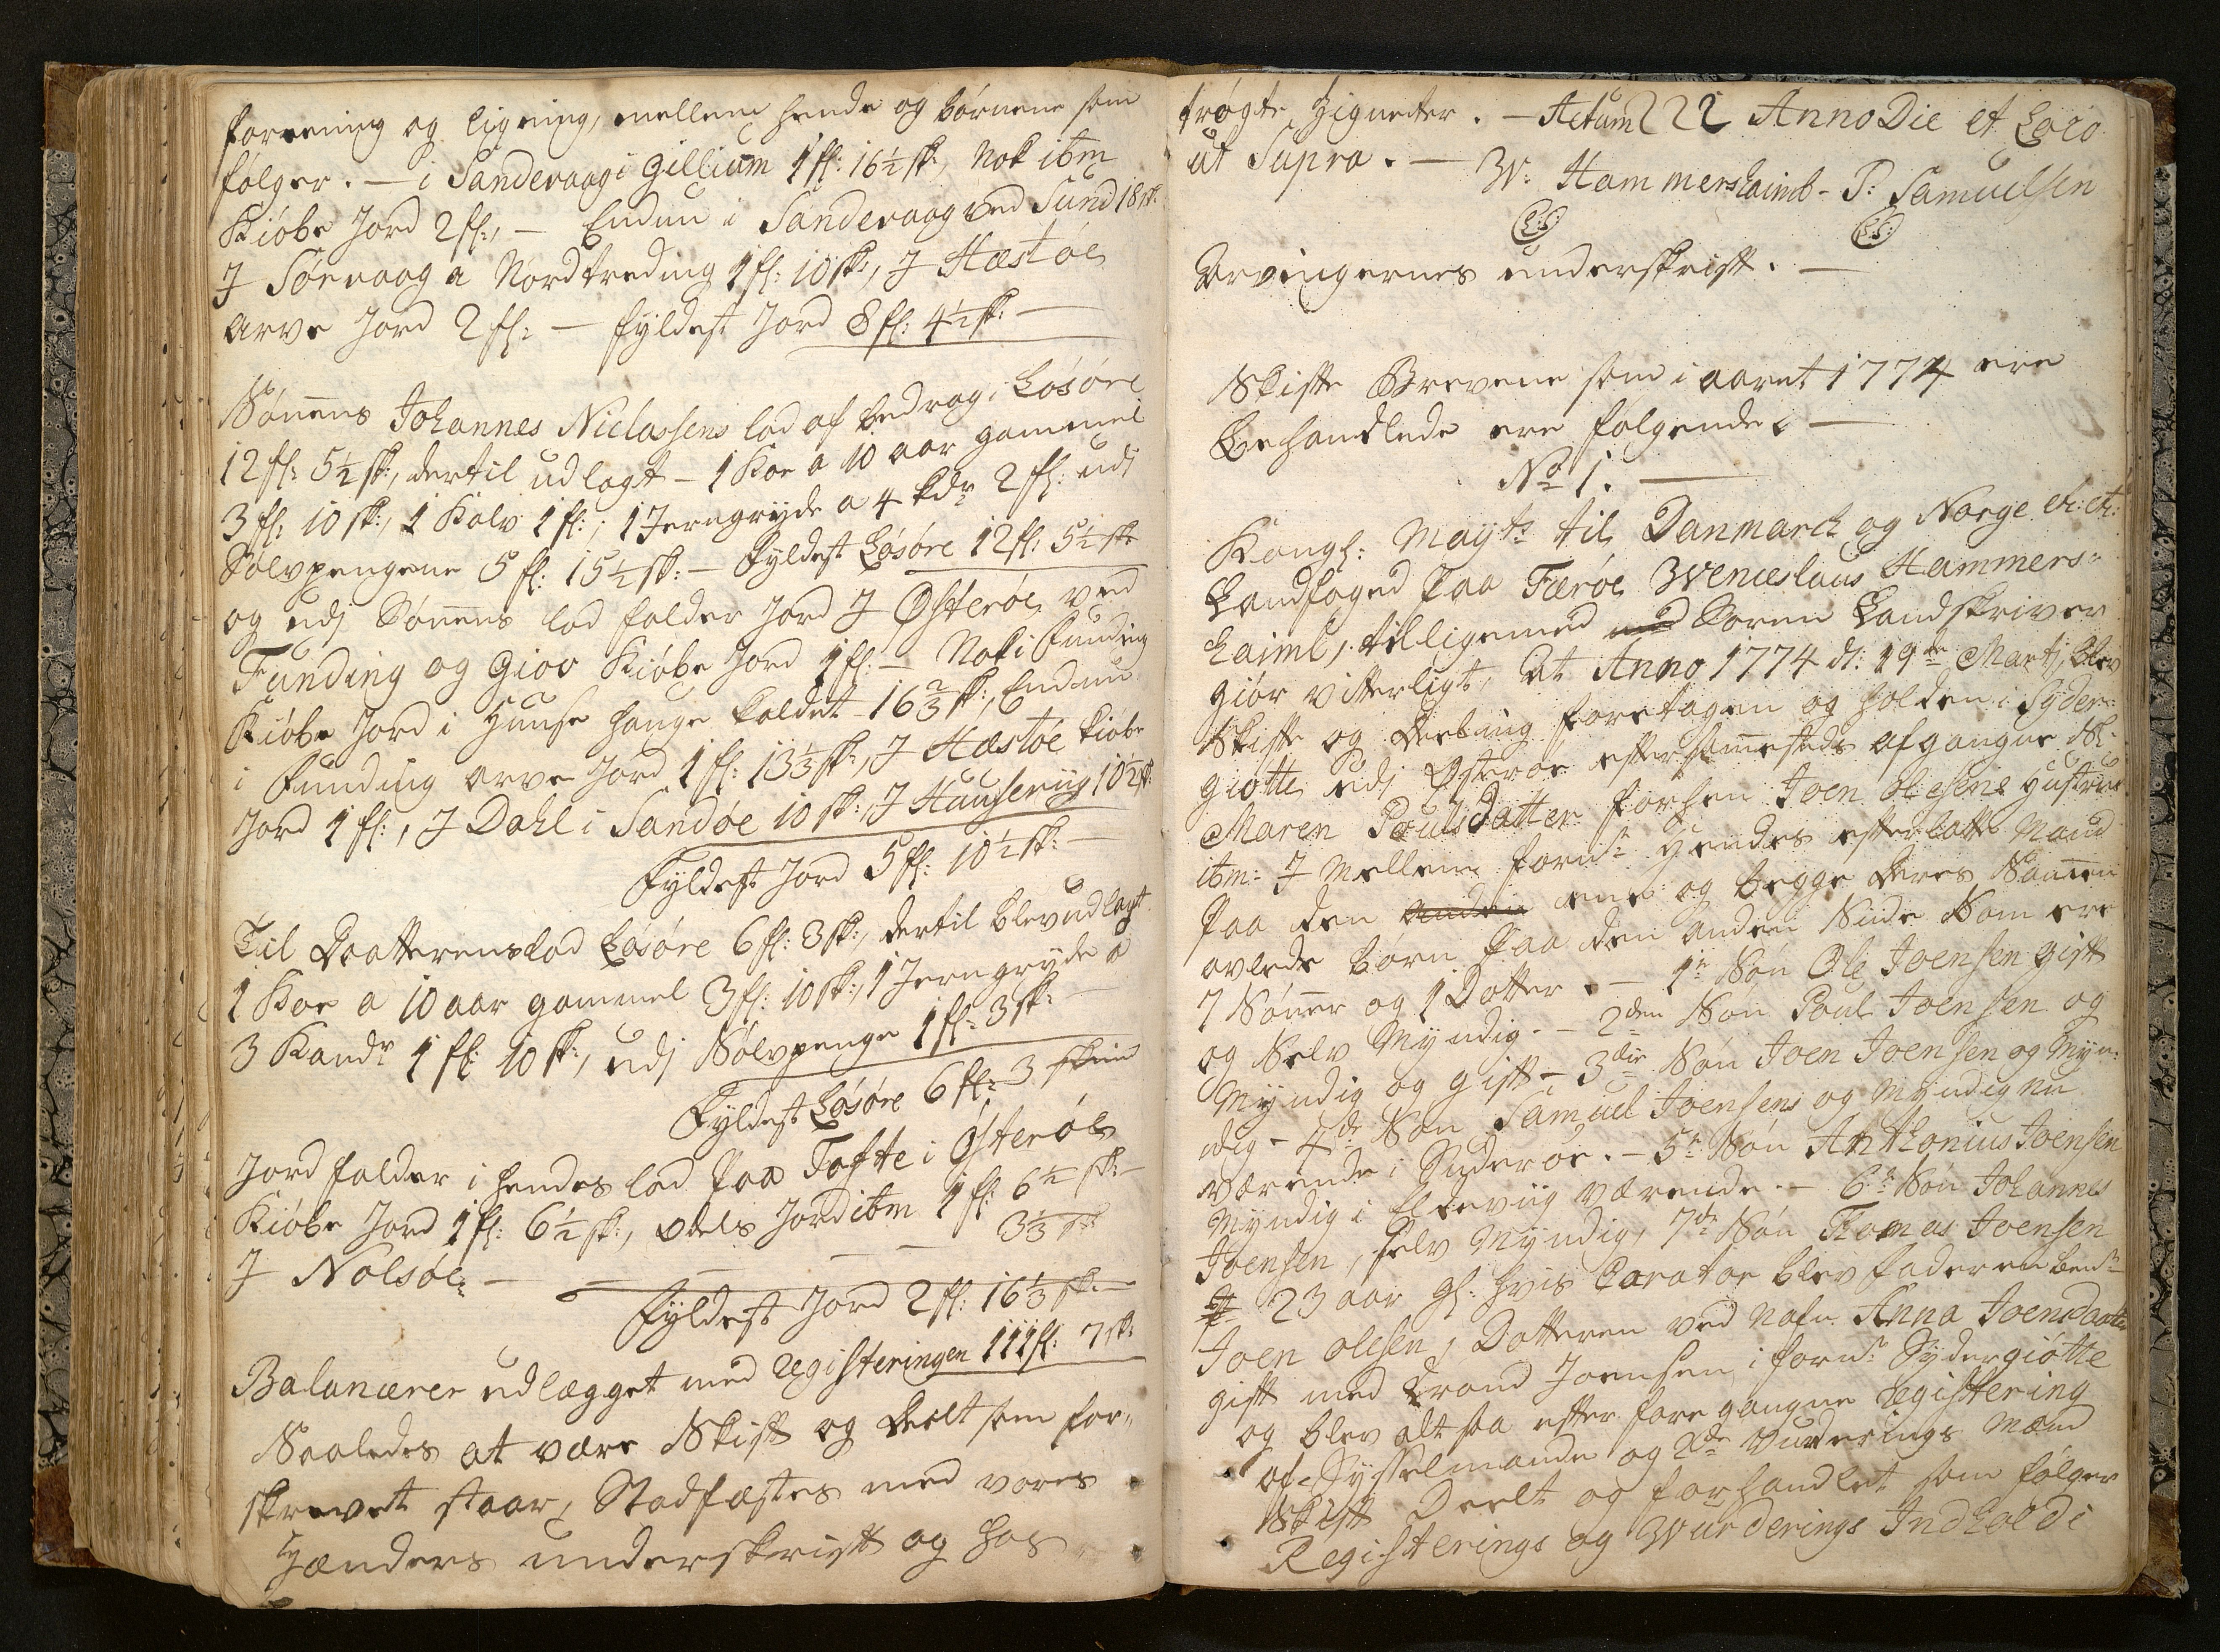 forrening og ligning, mellem hende og börnene som
følger. — i Sandevaag i Gillium 1 fl: 16½ sk:, Nok ibm
Kiöbe Jord 2 fl:, — Endnu i Sandevaag ved Sund 18 sk:
J Sørvaag a Nordtreding 1 fl: 10 sk:, J Hæstøe
arve Jord 2 fl: — fyldest Jord 8 fl: 4½ sk: —
Sønnens Johannes Niclassens lod af bedrag i Løsøre
12 fl: 5½ sk:, dertil udlagt — 1 Koe a 10 aar gammel
3 fl: 10 sk:, 1 Kalv 1 fl:; 1 Jerngryde a 4 kdr 2 fl: udj
Sølvpengene 5 fl: 15½ sk: — Fyldest Løsøre 12 fl: 5½ sk:
og udj Sønnens lod falder Jord J Østerøe ved
Funding og Giov Kiöbe Jord 1 fl: — Nok i Funding
Kiöbe Jord i Huuse hauge kaldet 16⅔ sk:, Endnu
i Funding arve Jord 1 fl: 13⅓ sk:, J Hæstøe kiöbe
Jord 1 fl:, J Dahl i Sandøe 10 sk:, J Hauseviig 10½ sk:
Fyldest Jord 5 fl: 10½ sk: —
Til Daatterens lod Løsøre 6 fl: 3 sk:, dertil blev udlagt
1 Koe a 10 aar gammel 3 fl: 10 sk:, 1 Jerngryde a
3 Kandr 1 fl: 10 sk:, udj Sølvpenge 1 fl: 3 sk: —
Fyldest Løsøre 6 fl: 3 skind
Jord falder i hendes lod paa Tofte i Østerøe
Kiöbe Jord 1 fl: 6½ sk:, odels Jord ibm 1 fl: 6½ sk: —
J Nolsøe — — — 3⅓ sk
Fyldest Jord 2 fl: 16⅓ sk: —
Balancerer udlægget med Registeringen 111 fl: 7 sk:
Saaledes at være Skift og Deelt som for„
skrevet staar, Stadfæstes med vores
Hænders underskrift og hos
trøgte Zigneter. — Actum Anno Die et Loco
ut Supra. — W: Hammershaimb — P: Samuelsen
L:S: L:S:
Arvingernes underskrift. —
Skifte Brevene som i aaret 1774 ere
Behandlede ere følgende. —
No 1. —
Kongl: Mayts til Danmarck og Norge etc: etc:
Landfoged paa Færøe Wenceslaus Hammers„
haimb, tilligemed med Soren Landskriver
giör vitterligt, at Anno 1774 d: 19de Martj, blev
Skifte og Deeling foretagen og holden i Syder„
giötte udj Østerøe efter sammesteds afgangne Sl:
Maren Poulsdatter forhen Joen Olesens Hustrue
ibm: J Mellem fornte Hendes efterlatte Mand
paa den anden ene og begge deres Sammen
avlede børn paa den anden Siide Som ere
7 Sønner og 1 Datter. — 1te Søn Ole Joensen gift
og Selv Myndig. — 2den Søn Poul Joensen og
Myndig og gift — 3die Søn Joen Joensen og Myn„
dig — 4de Søn Samuel Joensens og Myndig nu
værende i Suderøe. — 5te Søn Anthonius Joensen
Myndig i Eldeviig værende. — 6te Søn Johannes
Joensen, selv Myndig, 7de Søn Thomas Joensen
23 aar gl: hvis Curator blev faderen bemte
Joen Olesen, Datteren ved Nafn Anna Joensdaatter
gift med Trond Joensen i fornte Sydergiötte
og blev alt saa efter foregangne Registering
af Sysselmande og 2de Vurderings Mænd
Skift Deelt og forhandlet som følger
Registerings og Wurderings Indhold i